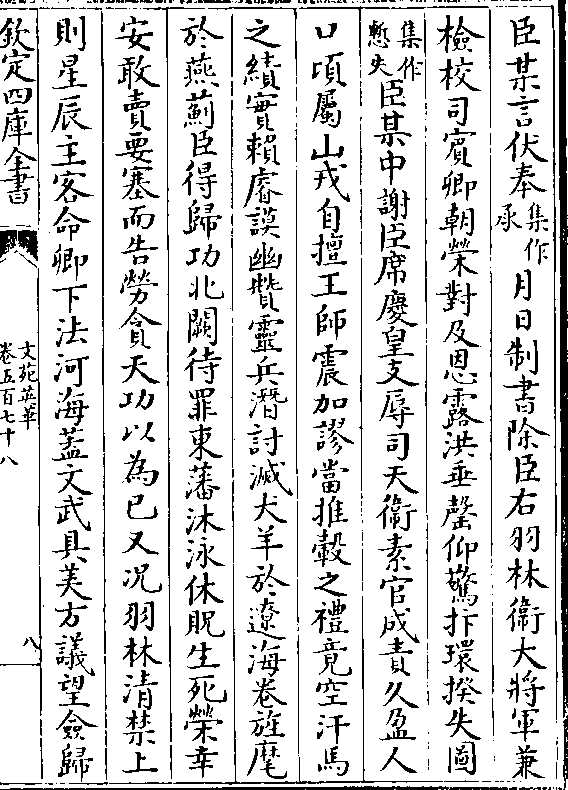 臣某言伏奉集作承月日制書除臣右羽林衞大將軍兼
檢校司賓卿朝榮對及恩露洪垂罄仰驚抃環揆失圖
集作慙失臣某中謝臣席慶皇支辱司天衞素官成責久盈人
口項屬山戎自擅王師震加謬當推轂之禮竟空汗馬
之績實賴睿謨幽贊靈兵潛討滅犬羊於遼海卷旌麾
於燕薊臣得歸功北闕待罪東藩沐泳休貺生死榮幸
安敢賣要塞而告勞貪天功以為已又况羽林清禁上
則星辰主客命卿下法河海蓋文武具美方議望僉歸
欽定四庫全書
文苑英華
卷五百七十八
八